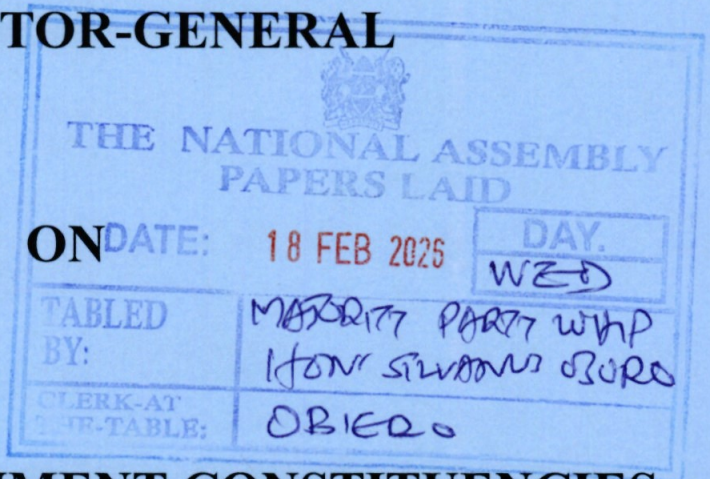 TOR-GENERAL
THE NATIONAL ASSEMBLY
PAPERS LAID
ON DATE: 18 FEB 2026 DAY.
WED
TABLED BY: MAJORITY PARTY WHIP
HON SILVANUS OSORO
CLERK-AT THE-TABLE: OBIERO
MENT CONSTITUENCIES